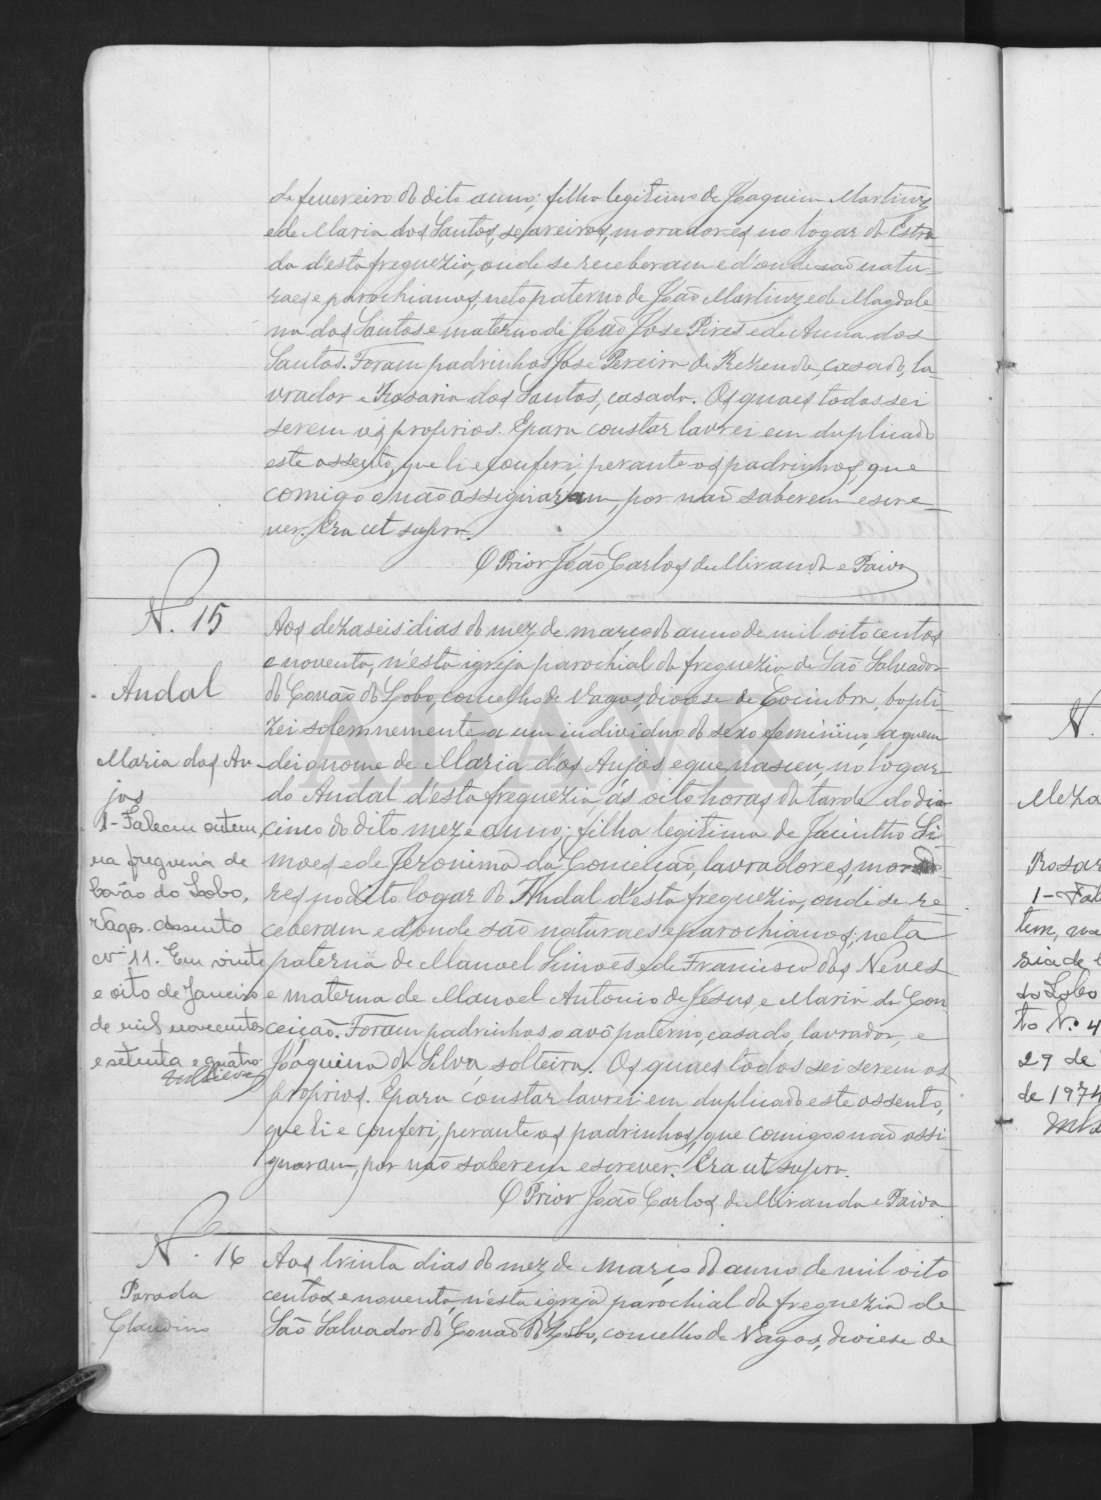 de fevereiro do dito anno; filho legitimo de Joaquim Martins
e de Maria dos Santos, seareiros, moradores no logar da Estra-
da d'esta freguezia, onde se receberam e d'onde são natu-
raes e parochianos, neto paterno de João Martins e de Magdale-
na dos Santos e materno de João José Pires e de Anna dos
Santos. Foram padrinhos José Pereira de Rezende, casado, la-
vrador e Rosaria dos Santos, casada. Os quaes todos sei
serem os proprios. E para constar lavrei em duplicado
este assento, que li e conferi perante os padrinhos, que
comigo o não assignaram, por não saberem escre-
ver. Era ut supra.
O Prior João Carlos de Miranda e Paiva
N. 15
Andal
Maria dos An-
jos
1- Faleceu ontem,
na freguesia de
Covão do Lobo,
Vagos. Assento
nº 11. Em vinte
e oito de Janeiro
de mil novecentos
e setenta e quatro.
Aos dezaseis dias do mez de março do anno de mil oitocentos
e noventa, n'esta igreja parochial da freguezia de São Salvador
do Covão do Lobo, concelho de Vagos, diocese de Coimbra, bapti-
zei solemnemente a um individuo do sexo feminino, a quem
dei o nome de Maria dos Anjos e que nasceu, no logar
do Andal d'esta freguezia, ás oito horas da tarde do dia
cinco do dito mez e anno; filha legitima de Jacintho Si-
mões e de Jeronima da Conceição, lavradores, morado-
res no dito logar do Andal d'esta freguezia, onde se re-
ceberam e d'onde são naturaes e parochianos; neta
paterna de Manoel Simões e de Francisca das Neves
e materna de Manoel Antonio de Jesus, e Maria da Con-
ceição. Foram padrinhos o avô paterno, casado, lavrador, e
Joaquina da Silva, solteira. Os quaes todos sei serem os
proprios. E para constar lavrei em duplicado este assento,
que li e conferi, perante os padrinhos, que comigo o não assi-
gnaram, por não saberem escrever. Era ut supra.
O Prior João Carlos de Miranda e Paiva
N. 16
Parada
Claudino
Aos trinta dias do mez de março do anno de mil oito
centos e noventa, n'esta igreja parochial da freguezia de
São Salvador do Covão do Lobo, concelho de Vagos, diocese de
N.
Rosar
1- Fal
tem, na
sia de
do Lobo
to N.º 4
29 de
de 1974
ADAVR